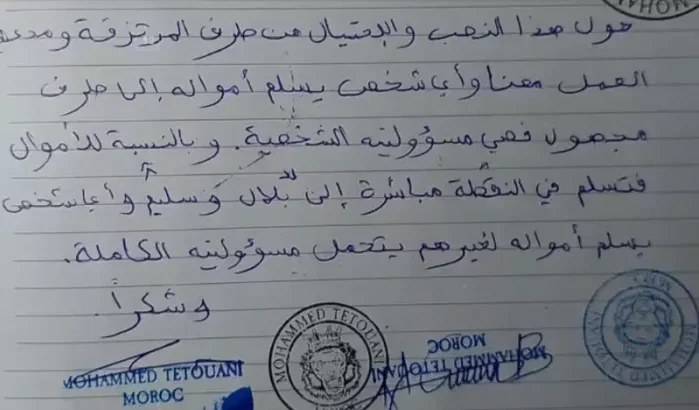 حول هذا النصب والإحتيال من طرف المرتزقة ومدعي
العمل معنا وأي شخص يسلم أمواله إلى طرف
مجهول فهي مسؤوليته الشخصية. و بالنسبة للأموال
فتسلم في النقطة مباشرة إلى بلال وسليم وأي شخص
يسلم أمواله لغيرهم يتحمل مسؤوليته الكاملة.
وشكراً.
MOHAMMED TETOUANI
MOROC
MOHAMMED TETOUANI
MOHAMMED TETOUANI
MOROC